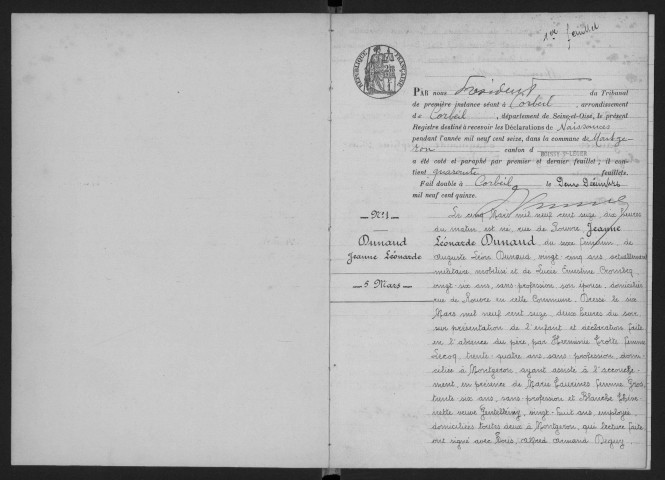 1er feuillet
RÉPUBLIQUE FRANÇAISE
PAR nous Président du Tribunal
de première instance séant à Corbeil, arrondissement
de Corbeil, département de Seine-et-Oise, le présent
Registre destiné à recevoir les Déclarations de Naissances
pendant l'année mil neuf cent seize, dans la commune de Montge-
ron canton d BOISSY-St-LÉGER
a été coté et paraphé par premier et dernier feuillet; il con-
tient quarante feuillets.
Fait double à Corbeil, le Deux Décembre
mil neuf cent quinze.
N° 1
Dunaud
Jeanne Léonarde
5 Mars
Le cinq Mars mil neuf cent seize, dix heures
du matin est née, rue de Rouvre, Jeanne
Léonarde Dunaud du sexe féminin de
Auguste Léon Dunaud, vingt cinq ans, actuellement
militaire mobilisé et de Lucie Ernestine
vingt-six ans, sans profession son épouse, domiciliés
rue de Rouvre en cette Commune. Dressé le six
Mars mil neuf cent seize, deux heures du soir
sur présentation de l'enfant et déclaration faite
en l'absence du père, par Herminie Trotté femme
Lecoq, trente-quatre ans sans profession, domi-
ciliée à Montgeron, ayant assisté à l'accouche-
ment, en présence de Marie femme Gros,
trente six ans, sans profession et Blanche
veuve vingt-huit ans, employée,
domiciliées toutes deux à Montgeron, qui lecture faite
ont signé avec Nous, Alfred Armand Deguy